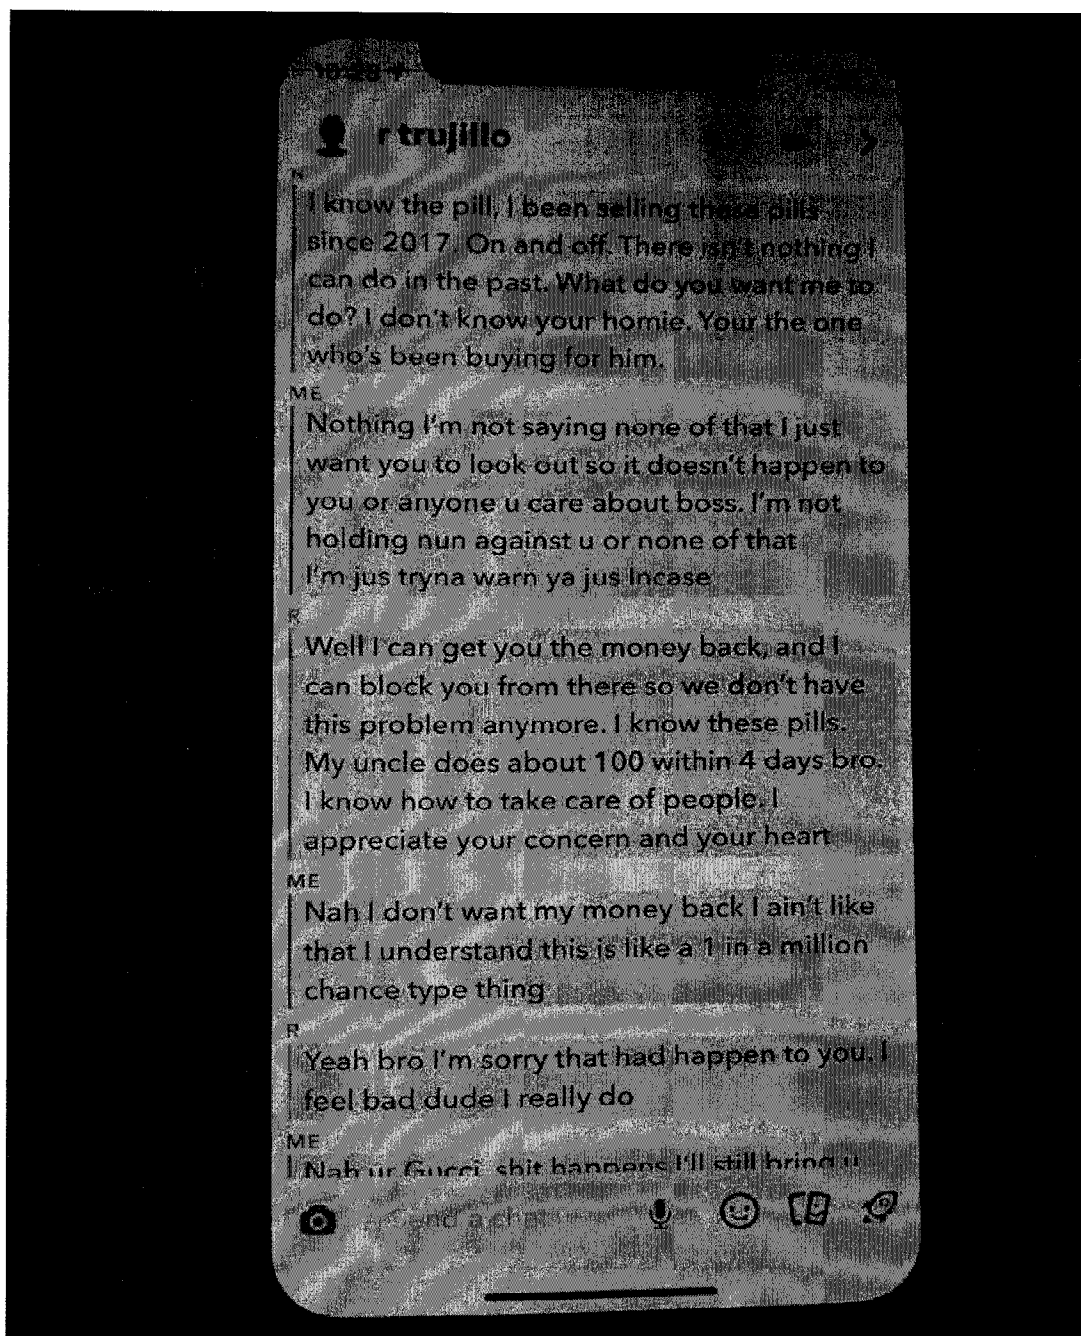 r trujillo
R
I know the pill, I been selling these pills
since 2017. On and off. There isn't nothing I
can do in the past. What do you want me to
do? I don't know your homie. Your the one
who's been buying for him.
ME
Nothing I'm not saying none of that I just
want you to look out so it doesn't happen to
you or anyone u care about boss. I'm not
holding nun against u or none of that
I'm jus tryna warn ya jus Incase
R
Well I can get you the money back, and I
can block you from there so we don't have
this problem anymore. I know these pills.
My uncle does about 100 within 4 days bro.
I know how to take care of people. I
appreciate your concern and your heart
ME
Nah I don't want my money back I ain't like
that I understand this is like a 1 in a million
chance type thing
R
Yeah bro I'm sorry that had happen to you. I
feel bad dude I really do
ME
Nah ur Gucci shit happens I'll still bring u
Send a chat